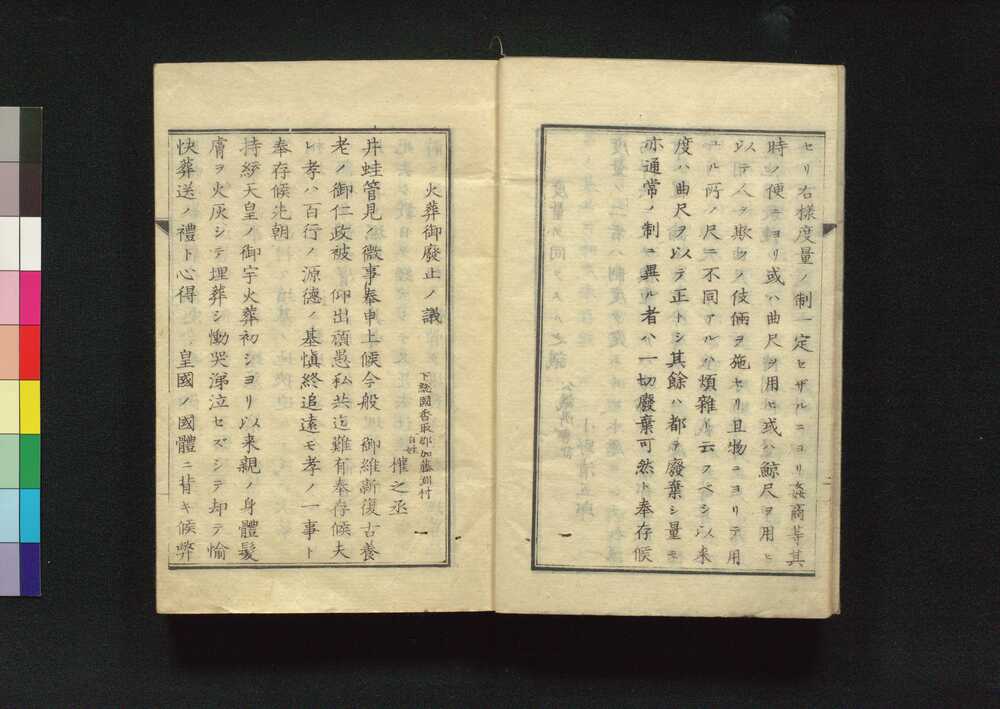 セリ右樣度量ノ制一定セザルニヨリ姦商等其
時ノ便ニヨリ或ハ曲尺ヲ用ヒ或ハ鯨尺ヲ用ヒ
以テ人ヲ欺クノ伎倆ヲ施セリ且物ニヨリテ用
ユル所ノ尺ニ不同アルハ煩雜ト云フベシ以来
度ハ曲尺ヲ以テ正トシ其餘ハ都テ廢棄シ量モ
亦通常ノ制ニ異ル者ハ一切廢棄可然ト奉存候
火葬御廢止ノ議
下總國香取郡加藤洲村
百姓 權之丞
井蛙管見ノ微事奉申上候今般 御維新復古養
老ノ御仁政被 仰出頑愚私共迄難有奉存候夫
ト孝ハ百行ノ源德ノ基愼終追遠モ孝ノ一事ト
奉存候先朝
持綂天皇ノ御宇火葬初シヨリ以来親ノ身體髮
膚ヲ火灰シテ埋葬シ慟哭涕泣セズシテ却テ愉
快葬送ノ禮ト心得 皇國ノ國體ニ背キ候弊